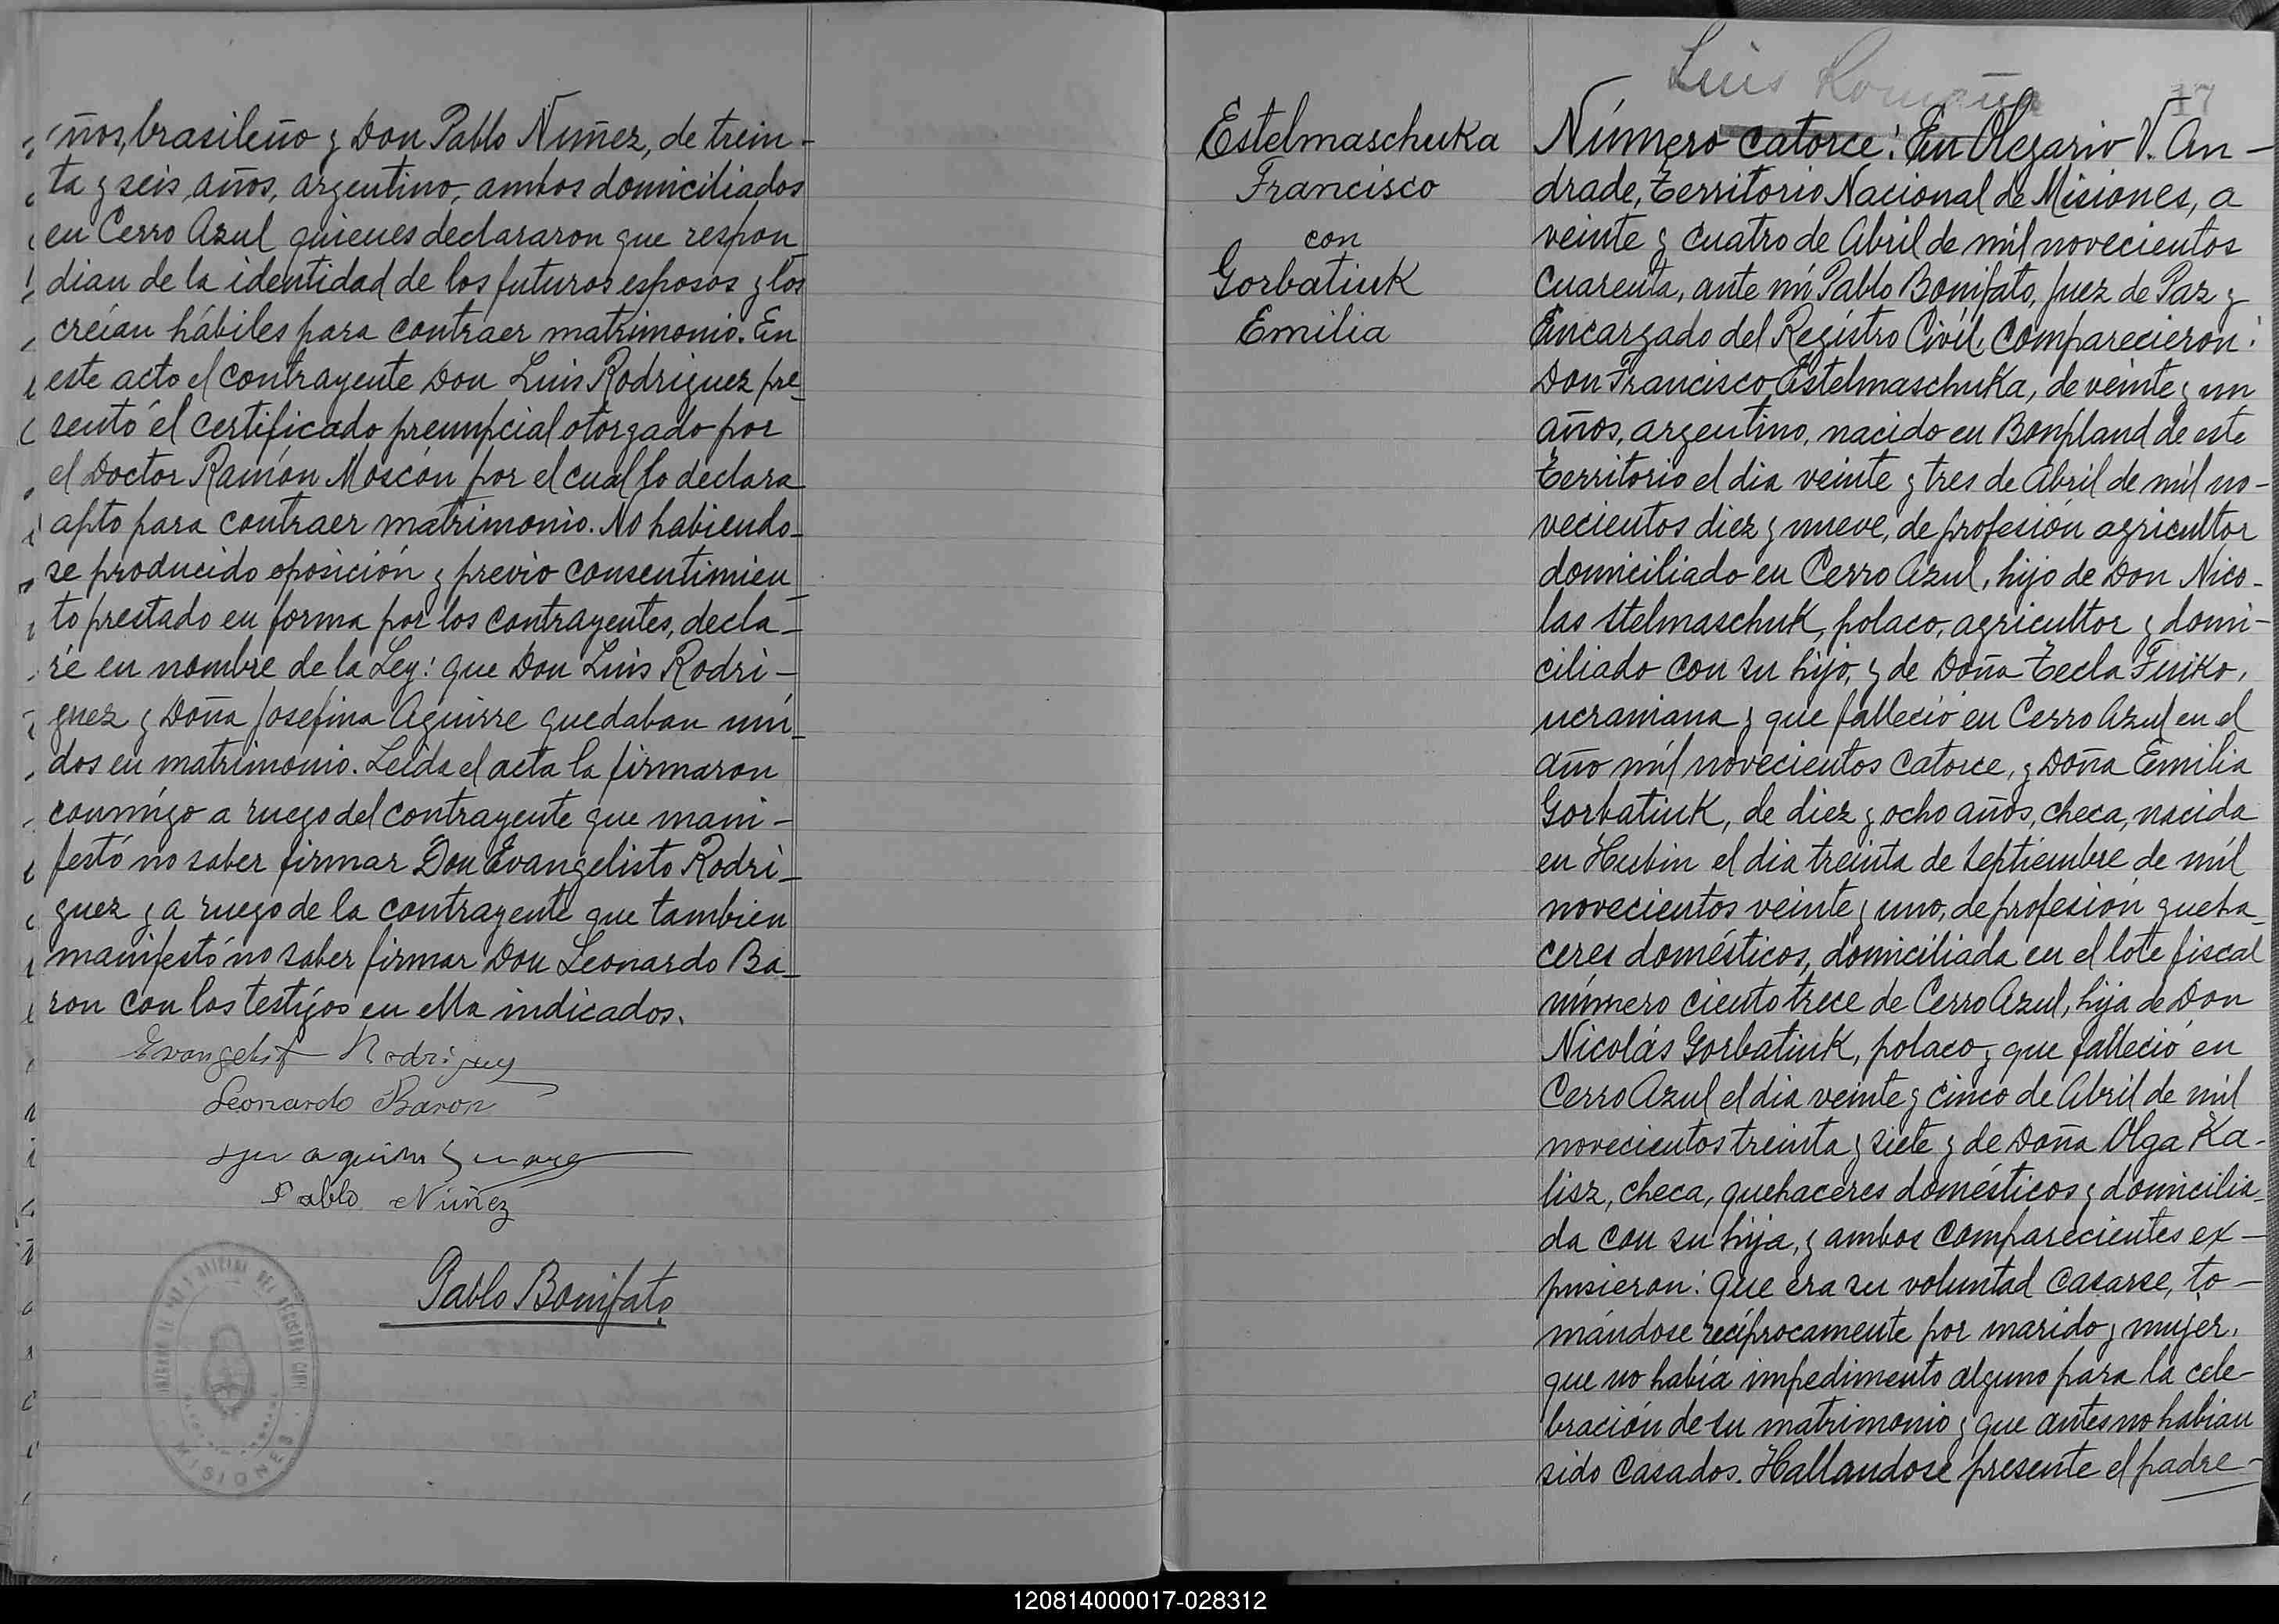 ños, brasileño y Don Pablo Nuñez, de trein-
ta y seis años, argentino, ambos domiciliados
en Cerro Azul quienes declararon que respon
dian de la identidad de los futuros esposos y los
creían hábiles para contraer matrimonio. En
este acto el contrayente Don Luis Rodriguez pre
sentó el certificado prenupcial otorgado por
el Doctor Ramón Moscón por el cual lo declara
apto para contraer matrimonio. No habiendo-
se producido oposición y previo consentimien
to prestado en forma por los contrayentes, decla-
ré en nombre de la Ley: que Don Luis Rodri-
guez y Doña Josefina Aguirre quedaban uni
dos en matrimonio. Leída el acta la firmaron
conmigo a ruego del contrayente que mani-
festó no saber firmar Don Evangelisto Rodri-
guez y a ruego de la contrayente que tambien
manifestó no saber firmar Don Leonardo Ba-
ron con los testigos en ella indicados.
Evangelist Rodriguez
Leonardo Baron
Pablo Nuñez
Pablo Bonifato
MISIONES
Luis
17
Estelmaschuka
Francisco
con
Gorbatiuk
Emilia
Número catorce: En Olegario V. An-
drade, Territorio Nacional de Misiones, a
veinte y cuatro de Abril de mil novecientos
cuarenta, ante mí Pablo Bonifato, Juez de Paz y
Encargado del Registro Civil, comparecieron:
Don Francisco Estelmaschuka, de veinte y un
años, argentino, nacido en Bonpland de este
Territorio el dia veinte y tres de Abril de mil no-
vecientos diez y nueve, de profesión agricultor
domiciliado en Cerro Azul, hijo de Don Nico-
las Stelmaschuk, polaco, agricultor y domi-
ciliado con su hijo, y de Doña Tecla Fuiko,
ucraniana y que falleció en Cerro Azul en el
año mil novecientos catorce, y Doña Emilia
Gorbatiuk, de diez y ocho años, checa, nacida
en Hubin el dia treinta de Septiembre de mil
novecientos veinte y uno, de profesión queha
ceres domésticos, domiciliada en el lote fiscal
número ciento trece de Cerro Azul, hija de Don
Nicolás Gorbatiuk, polaco y que falleció en
Cerro Azul el dia veinte y cinco de Abril de mil
novecientos treinta y siete y de Doña Olga Ka-
lisz, checa, quehaceres domésticos y domicilia-
da con su hija, y ambos comparecientes ex-
pusieron: Que era su voluntad casarse, to-
mándose recíprocamente por marido y mujer,
que no había impedimento alguno para la cele-
bración de su matrimonio y que antes no habian
sido casados. Hallandose presente el padre-
120814000017-028312